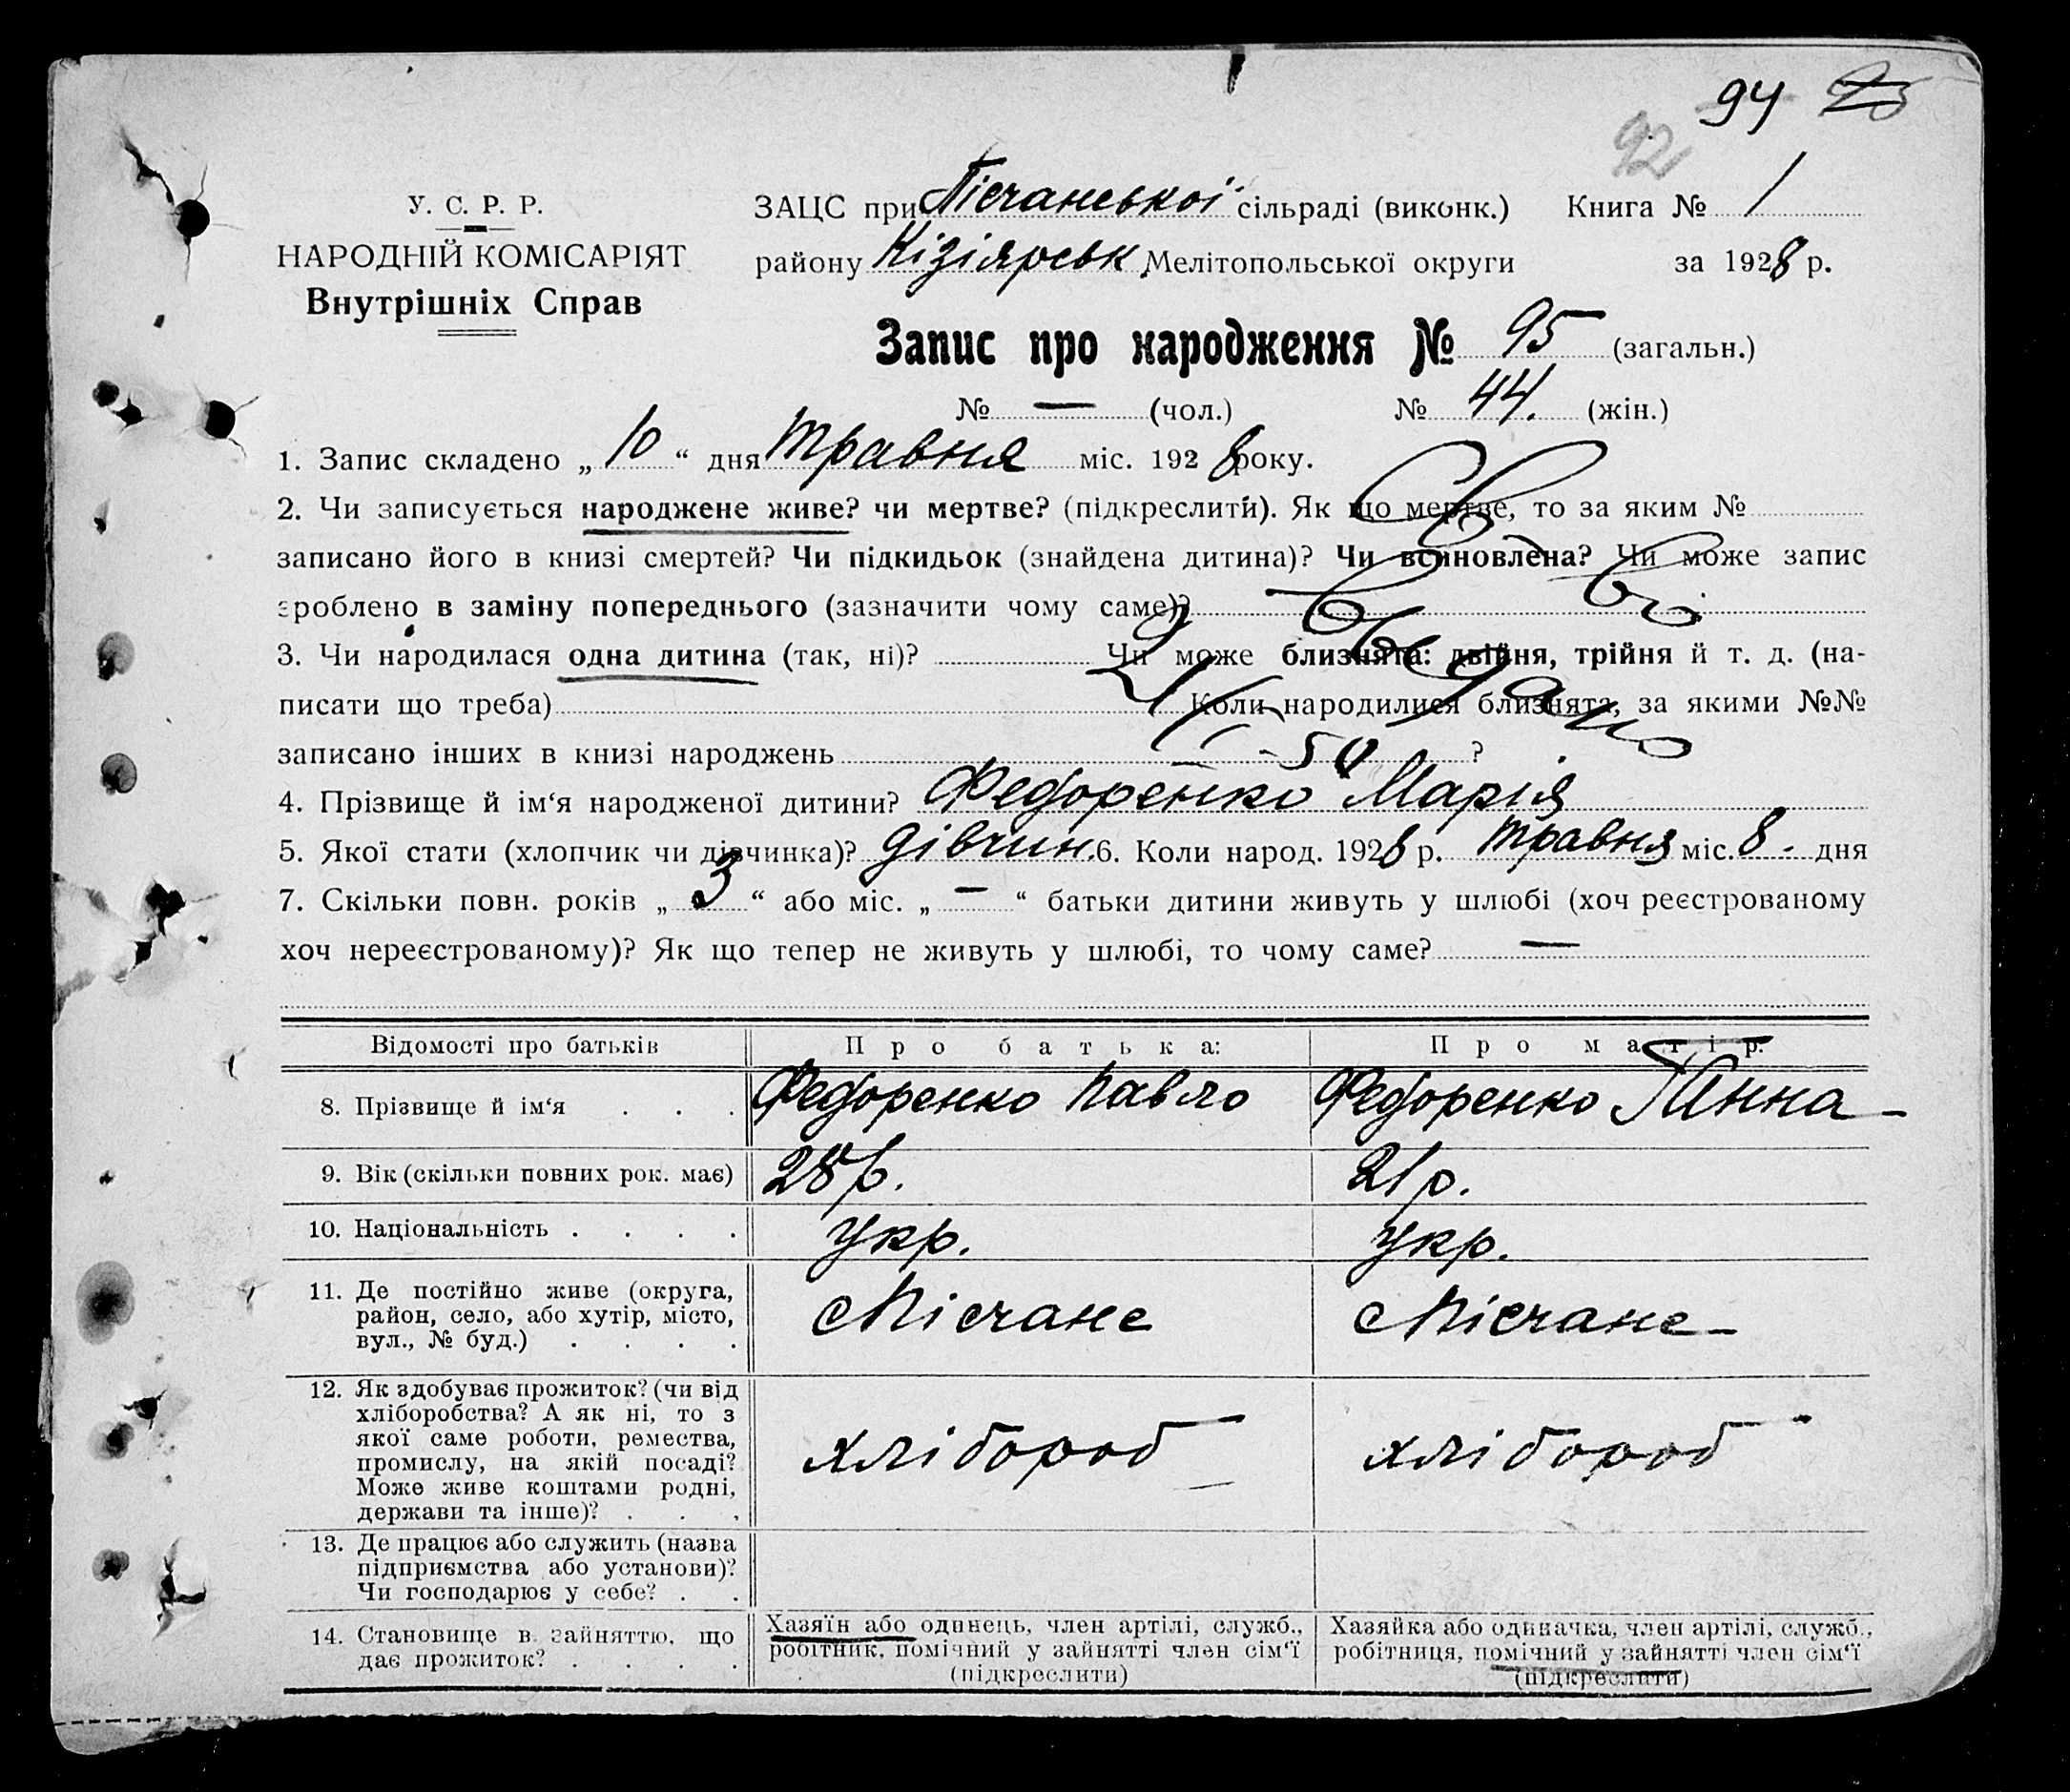 94
92
У. С. Р. Р.
НАРОДНІЙ КОМІСАРІЯТ
Внутрішніх Справ
ЗАЦС при Пісчанської сільраді (виконк.) Книга № 1
району Кізіярськ Мелітопольської округи за 1928 р.
Запис про народження № 95 (загальн.)
№ — (чол.) № 44. (жін.)
1. Запис складено „ 10 “ дня травня міс. 1928 року.
2. Чи записується народжене живе? чи мертве? (підкреслити). Як що мертве, то за яким №
записано його в книзі смертей? Чи підкидьок (знайдена дитина)? Чи всиновлена? Чи може запис
зроблено в заміну попереднього (зазначити чому саме)?
3. Чи народилася одна дитина (так, ні)? Чи може близнята: двійня, трійня й т. д. (на-
писати що треба) Коли народилися близнята, за якими №№
записано інших в книзі народжень ?
4. Прізвище й ім‘я народженої дитини? Федоренко Марія
5. Якої стати (хлопчик чи дівчинка)? дівчин. 6. Коли народ. 1928 р. травня міс. 8. дня
7. Скільки повн. років „ 3 “ або міс. „ — “ батьки дитини живуть у шлюбі (хоч реєстрованому
хоч нереєстрованому)? Як що тепер не живуть у шлюбі, то чому саме? —
Відомості про батьків Про батька: Про матір:
8. Прізвище й ім‘я . . . Федоренко Павло Федоренко Ганна -
9. Вік (скільки повних рок. має) 28 р. 21 р.
10. Національність . . . . Укр. Укр.
11. Де постійно живе (округа,
район, село, або хутір, місто,
вул., № буд.) . . . .
с Пісчане с Пісчане -
12. Як здобуває прожиток? (чи від
хліборобства? А як ні, то з
якої саме роботи, ремества,
промислу, на якій посаді?
Може живе коштами родні,
держави та інше)? . . .
хлібороб хлібороб
13. Де працює або служить (назва
підприємства або установи)?
Чи господарює у себе? . .
14. Становище в зайняттю, що
дає прожиток? . . . .
Хазяїн або одинець, член артілі, служб.,
робітник, помічний у зайнятті член сім‘ї
(підкреслити)
Хазяйка або одиначка, член артілі, служб.,
робітниця, помічний у зайнятті член сім‘ї
(підкреслити)